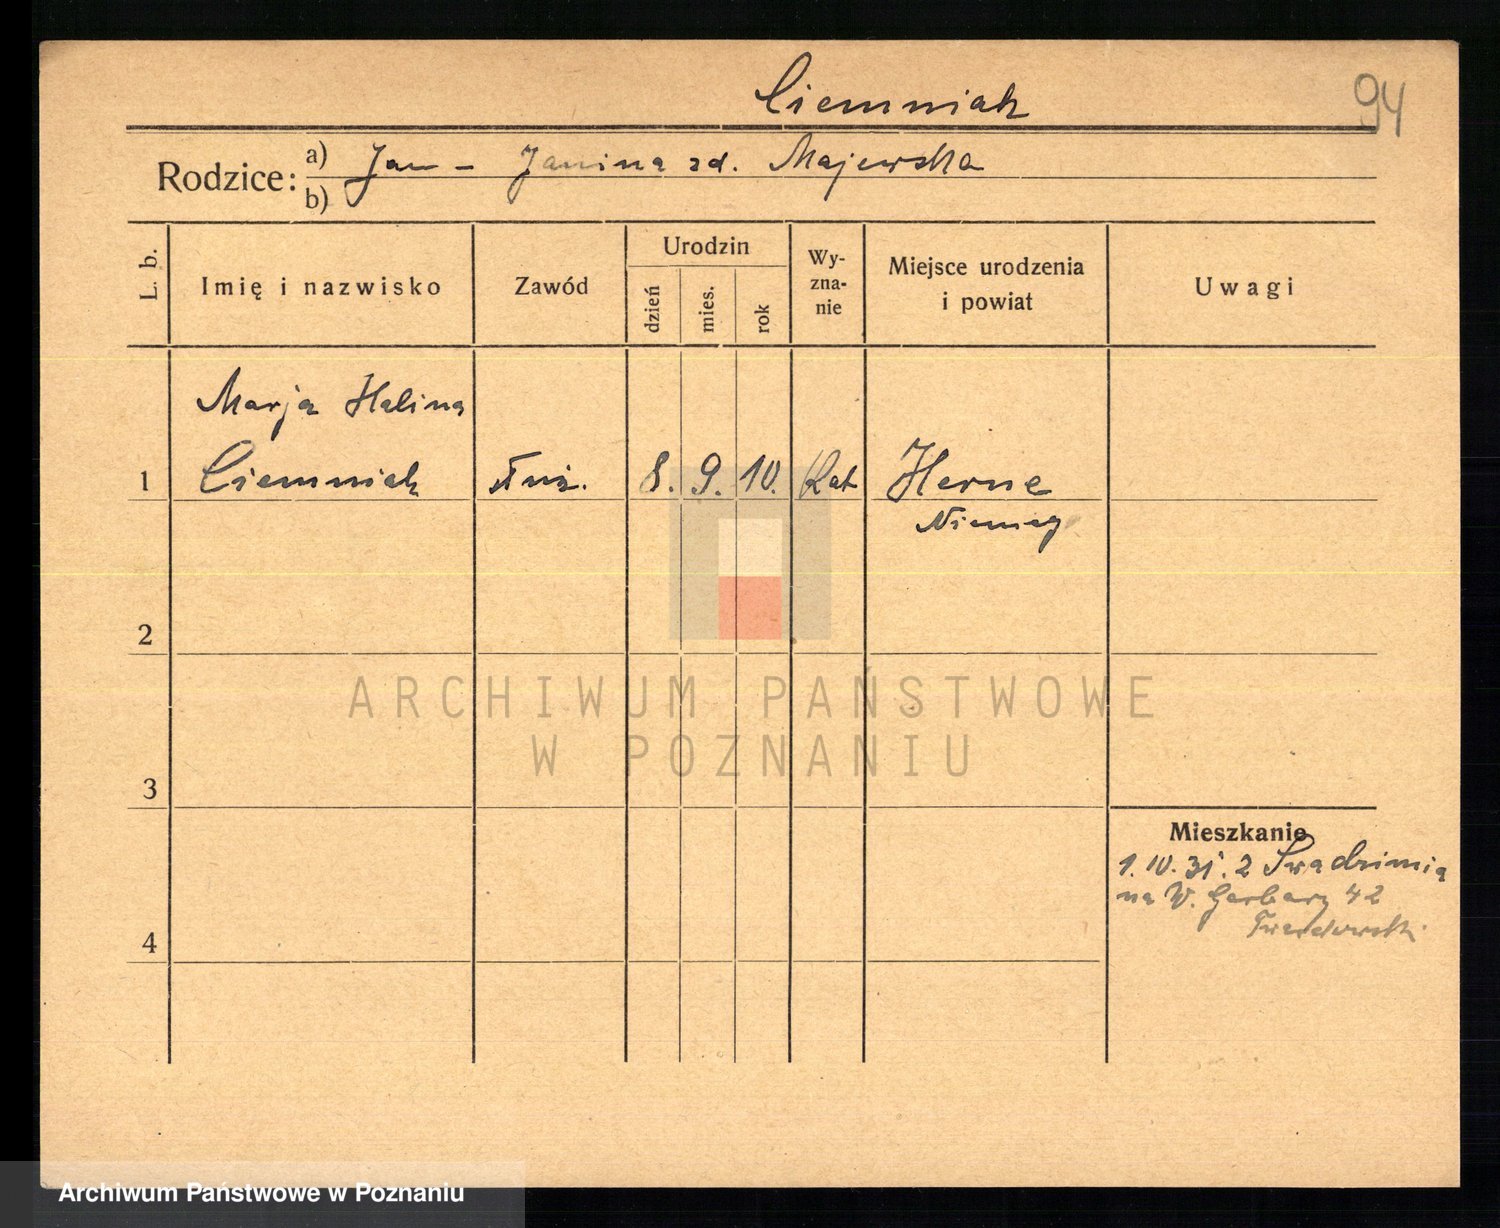 Ciemniak
94
Rodzice: a) Jan - Janina zd. Majewska
b)
L. b.
Imię i nazwisko
Zawód
Urodzin
dzień
mies.
rok
Wy-
zna-
nie
Miejsce urodzenia
i powiat
Uwagi
Marja Halina
1 Ciemniak 8. 9. 10. Kat Herne
Niemcy
2
3
4
Mieszkanie
1. IV. 31. z Swadzimia
na W. Garbary 42
Twardowski
ARCHIWUM PAŃSTWOWE
W POZNANIU
Archiwum Państwowe w Poznaniu